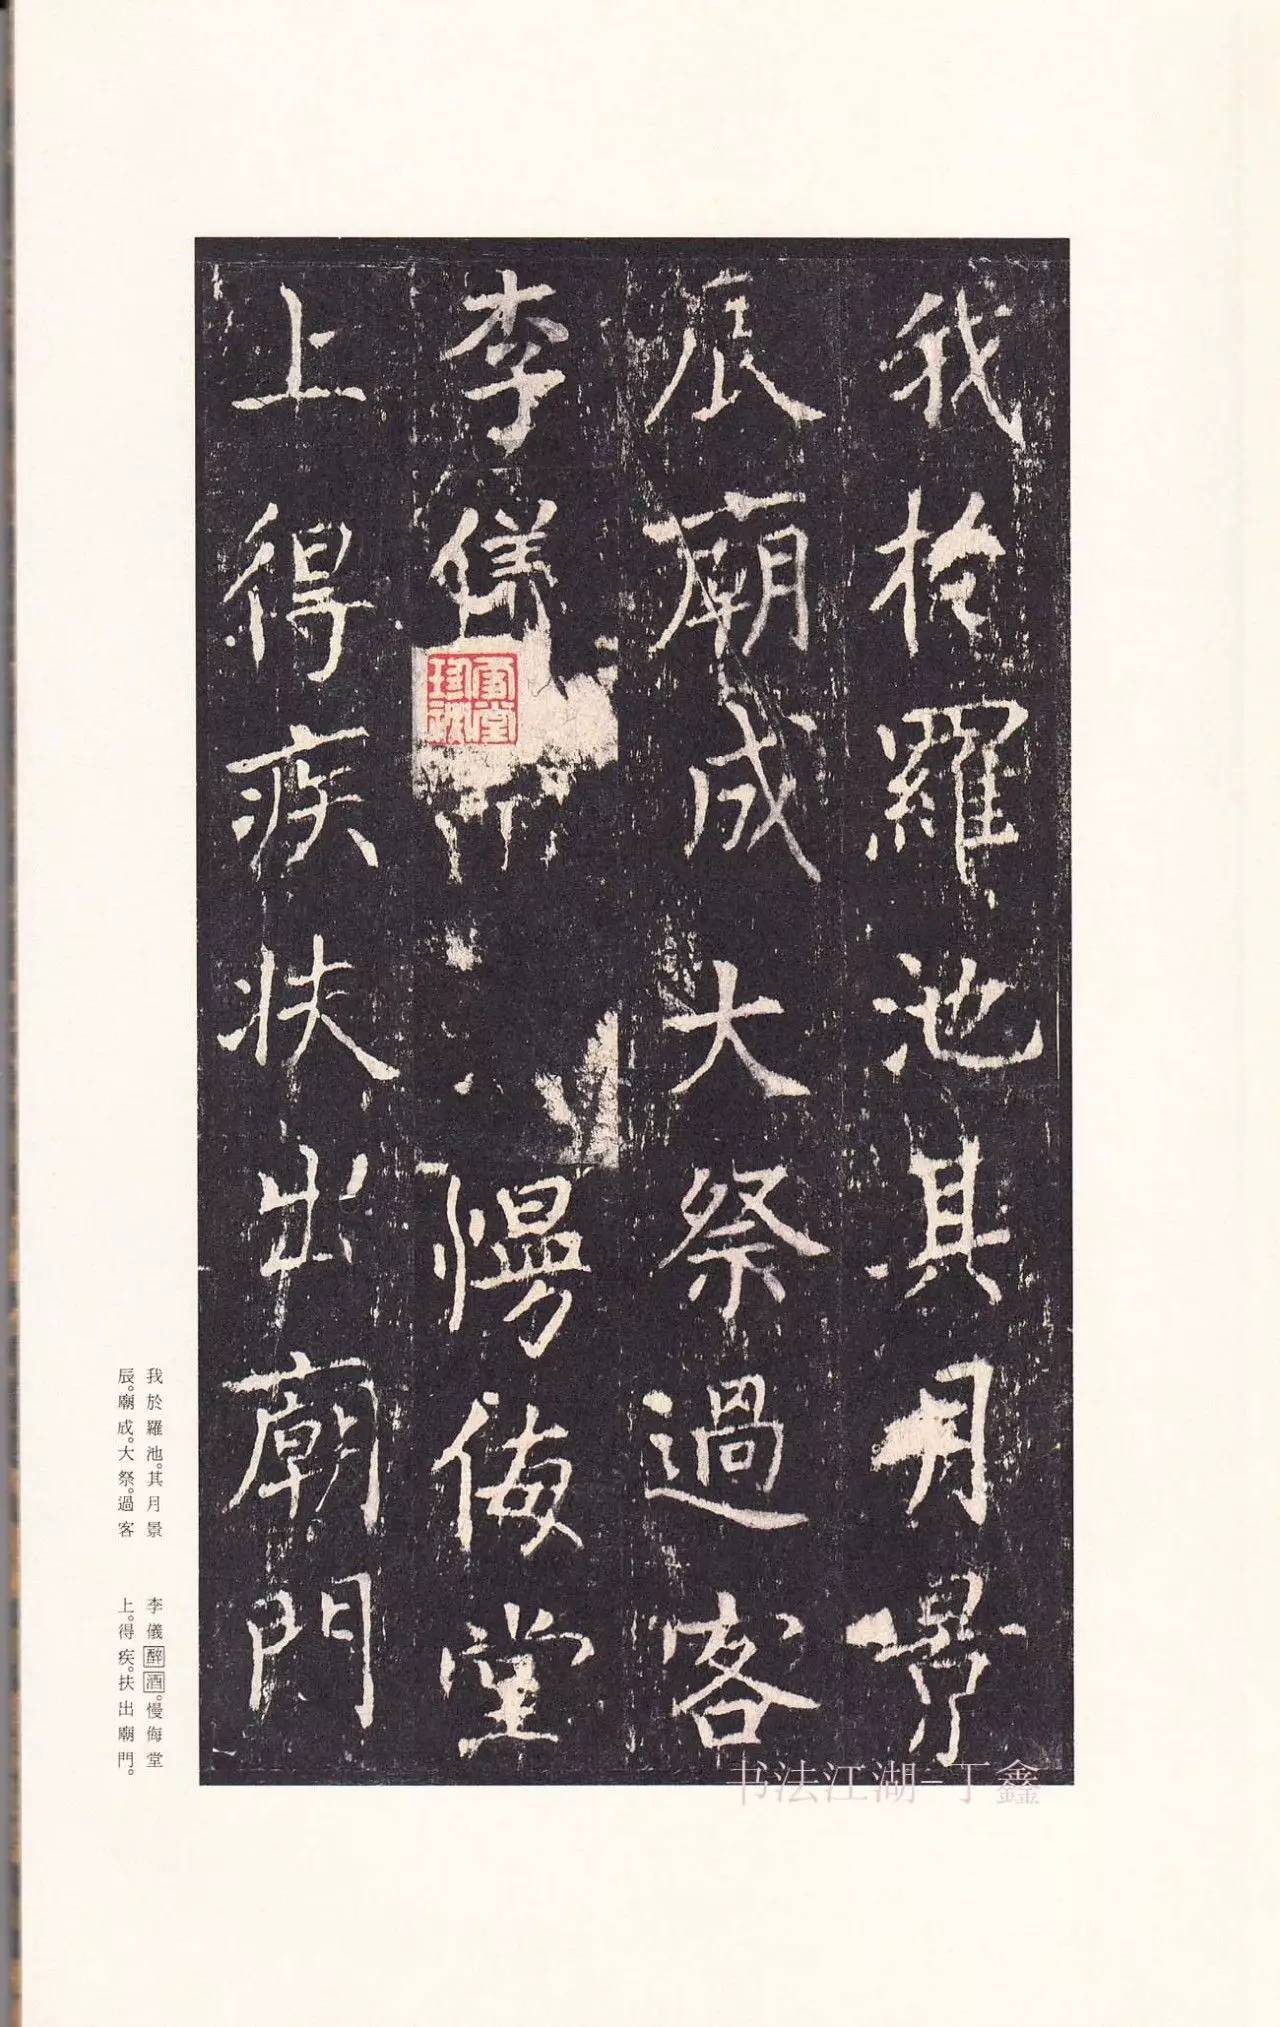 我於羅池其月景
辰廟成大祭過客
李儀慢侮堂
上得疾扶出廟門
雪堂珍祕
我於羅池。其月景
辰。廟成。大祭。過客
李儀醉酒。慢侮堂
上。得疾。扶出廟門。
书法江湖-丁鑫